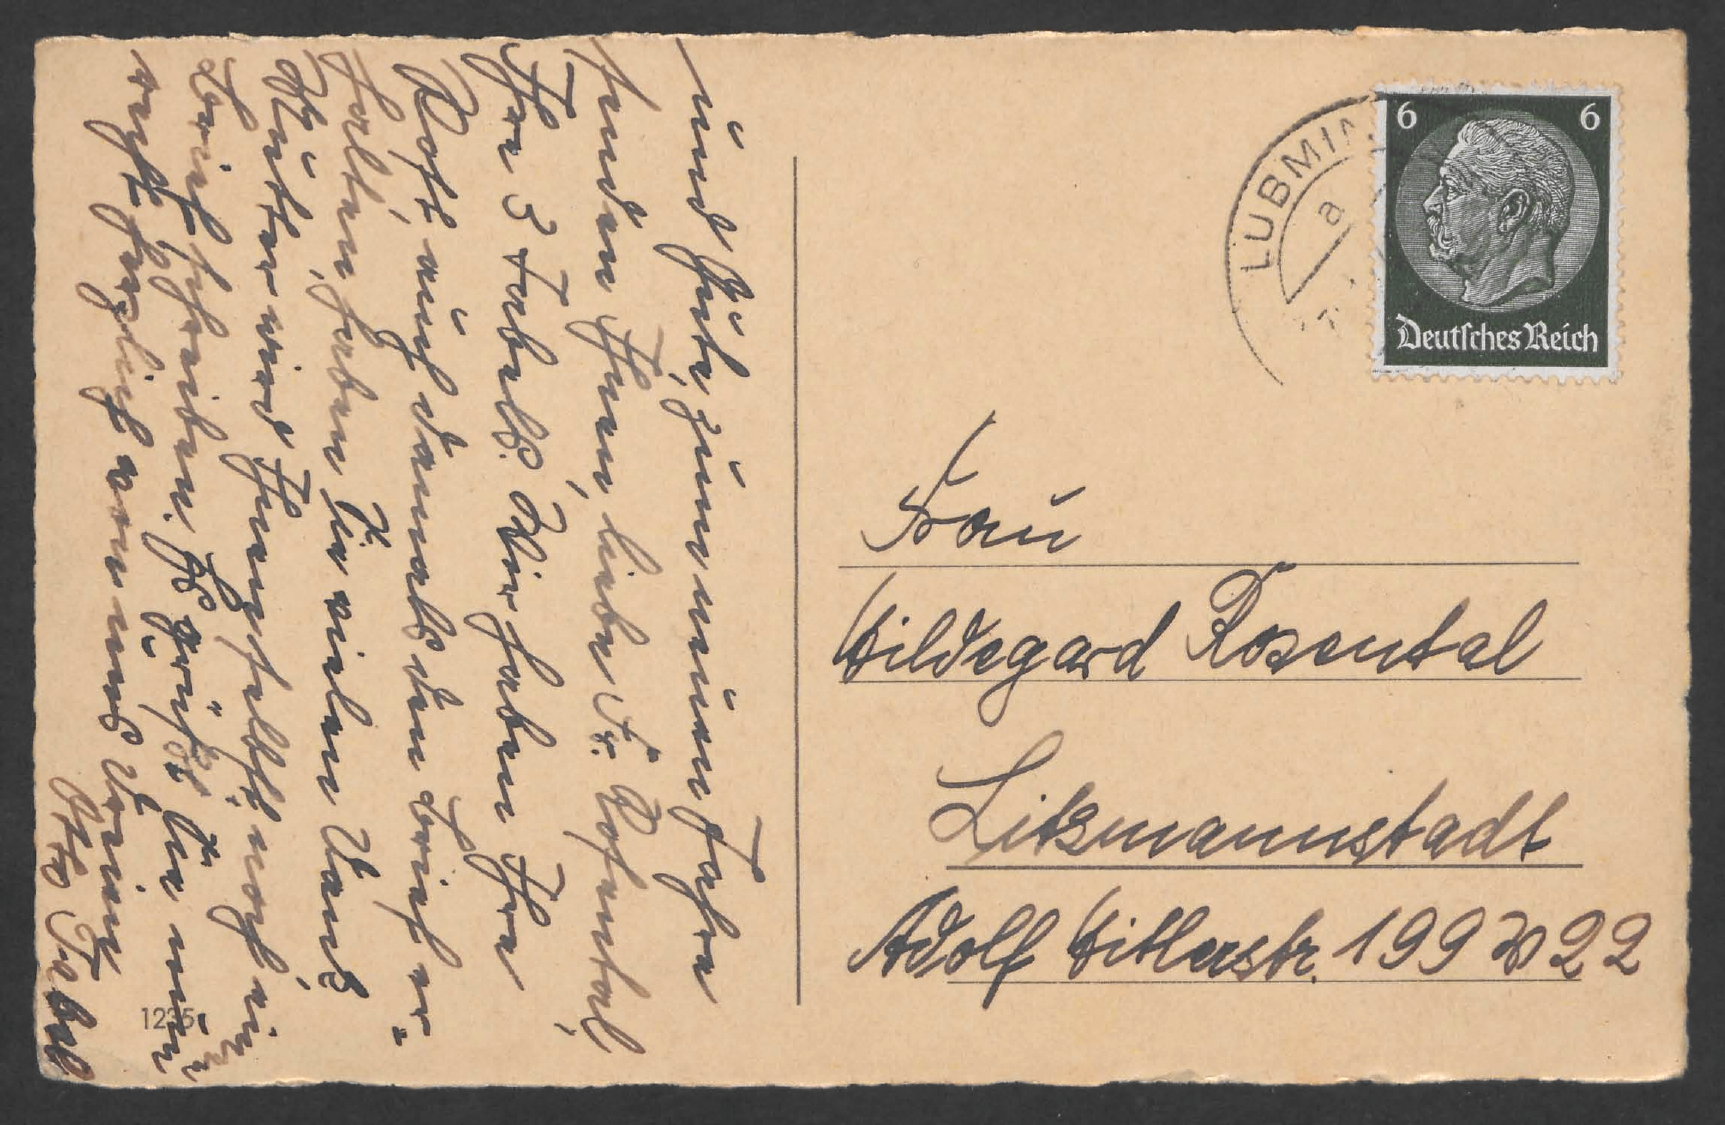 und Gute zum neuen Jahre
senden Ihnen, liebe Fr. Rosental,
Ihre 3 Fabels. Wir haben Ihre
Post auch damals den Brief er-
halten, haben Sie vielen Dank
Mutter wird Ihnen selbst noch ein
Brief schreiben. Es grüßt Sie nun
recht herzlich von uns Deine
Otto Fabel
1235
LUBMIN
a
6 6
Deutsches Reich
Frau
Hildegard Rosental
Litzmannstadt
Adolf Hitlerstr. 199 W 22